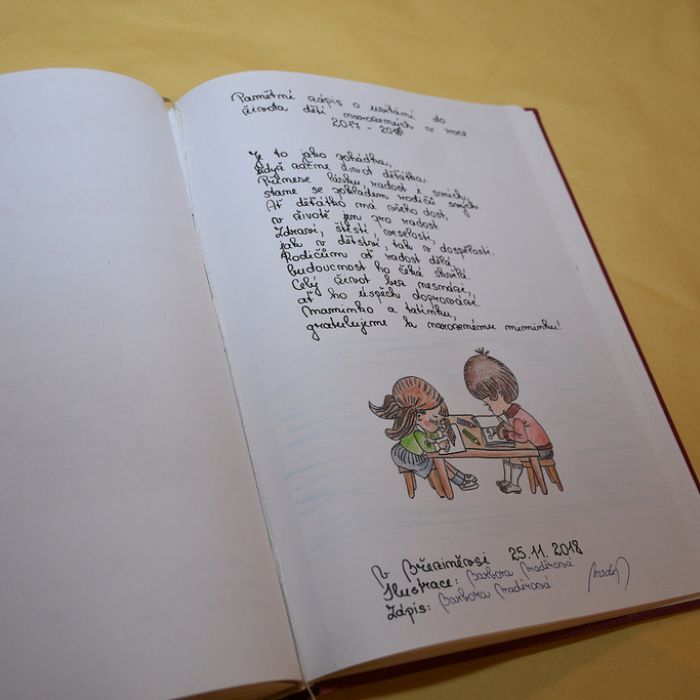 Pamětní zápis o uvítání do
života dětí narozených v roce
2017 - 2018
Je to jako pohádka,
když začne život děťátka.
Přinese lásku, radost i smích,
stane se pokladem rodičů svých.
Ať děťátko má všeho dost,
v životě jen pro radost.
Zdraví, štěstí, veselosti,
jak v dětství, tak v dospělosti.
Rodičům ať radost dělá,
budoucnost ho čeká skvělá.
Celý život bez nesnází,
ať ho úspěch doprovází.
Maminko a tatínku,
gratulujeme k narozenému miminku!
V Březiněvsi 25.11.2018
Ilustrace: Barbora Maděrová
Zápis: Barbora Maděrová